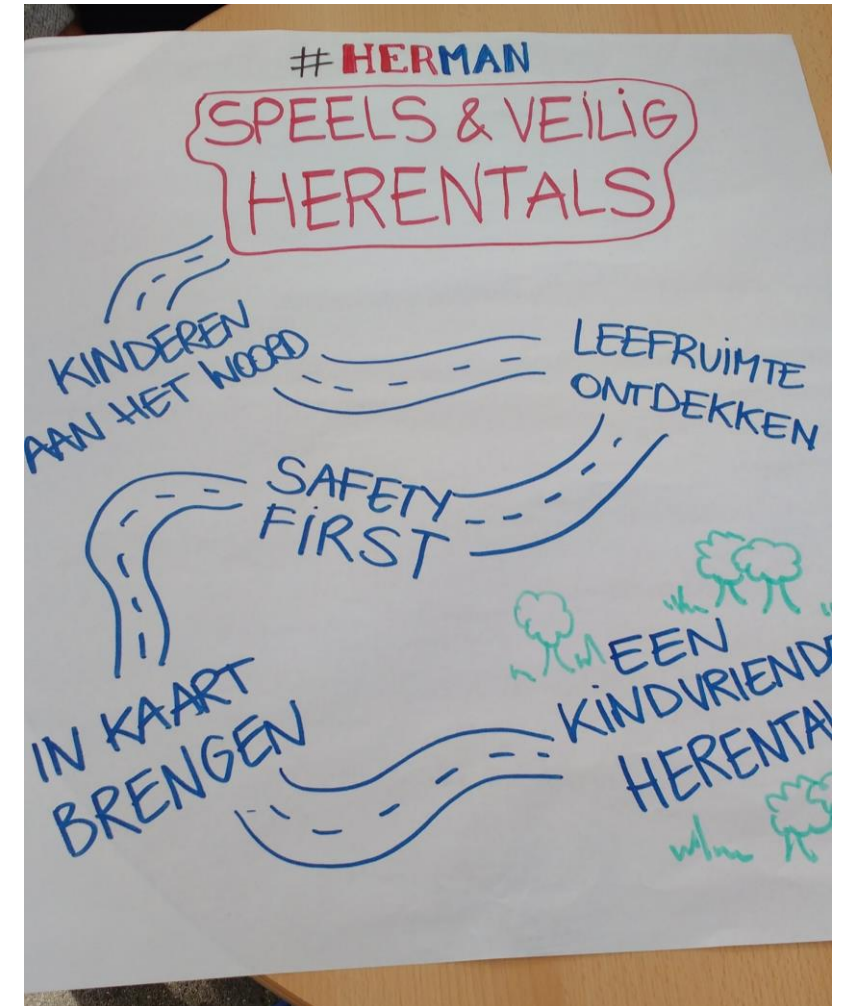 #HERMAN
SPEELS & VEILIG
HERENTALS
KINDEREN
AAN HET WOORD
LEEFRUIMTE
ONTDEKKEN
SAFETY
FIRST
IN KAART
BRENGEN
EEN